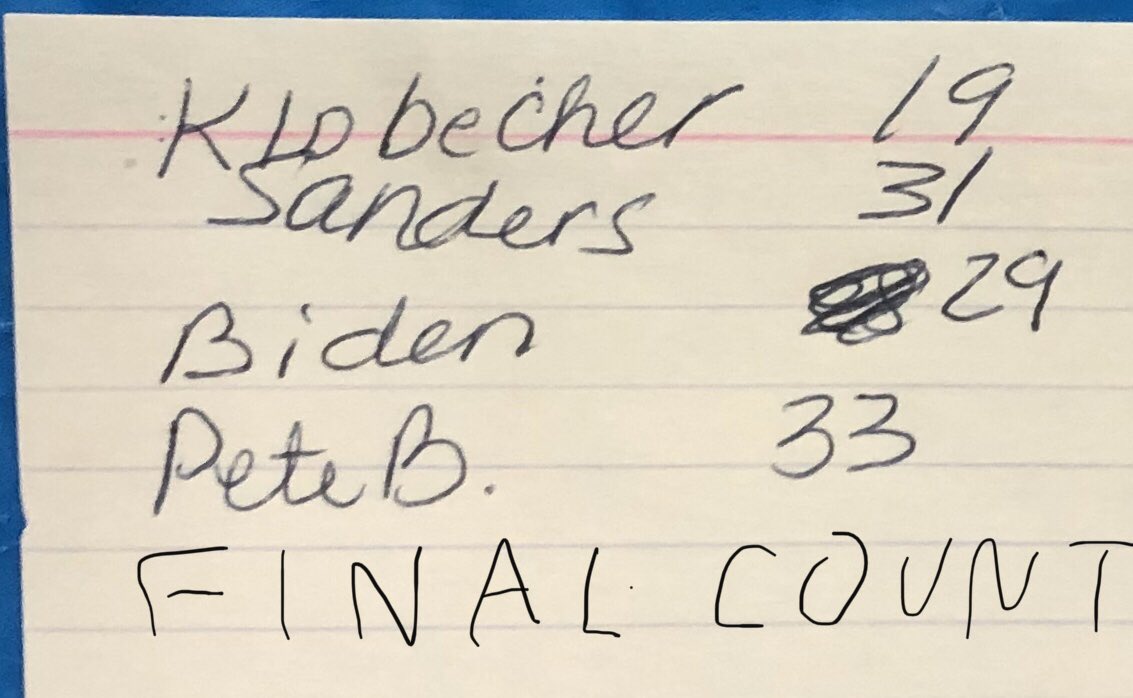 Klobecher 19
Sanders 31
Biden 29
Pete B. 33
FINAL COUNT